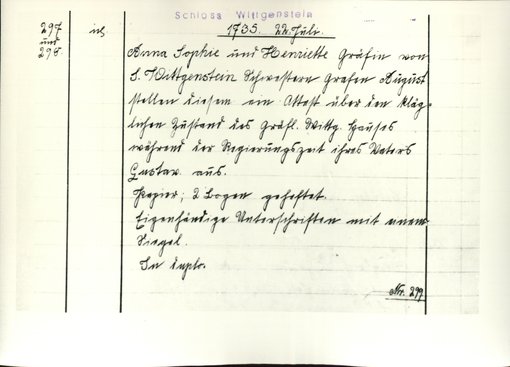 Schloss Wittgenstein
297 ib 1735. 22. Juli.
und
298
Anna Sophie und Henriette Gräfin von
S. Wittgenstein Schwestern Grafen August
stellen diesem ein Attest über den kläg-
lichen Zustand des Gräfl. Wittg. Hauses
während der Regierungszeit ihres Vaters
Gustav aus.
Papier, 2 Bogen geheftet.
Eigenhändige Unterschriften mit einem
Siegel.
In duplo.
Nr. 299